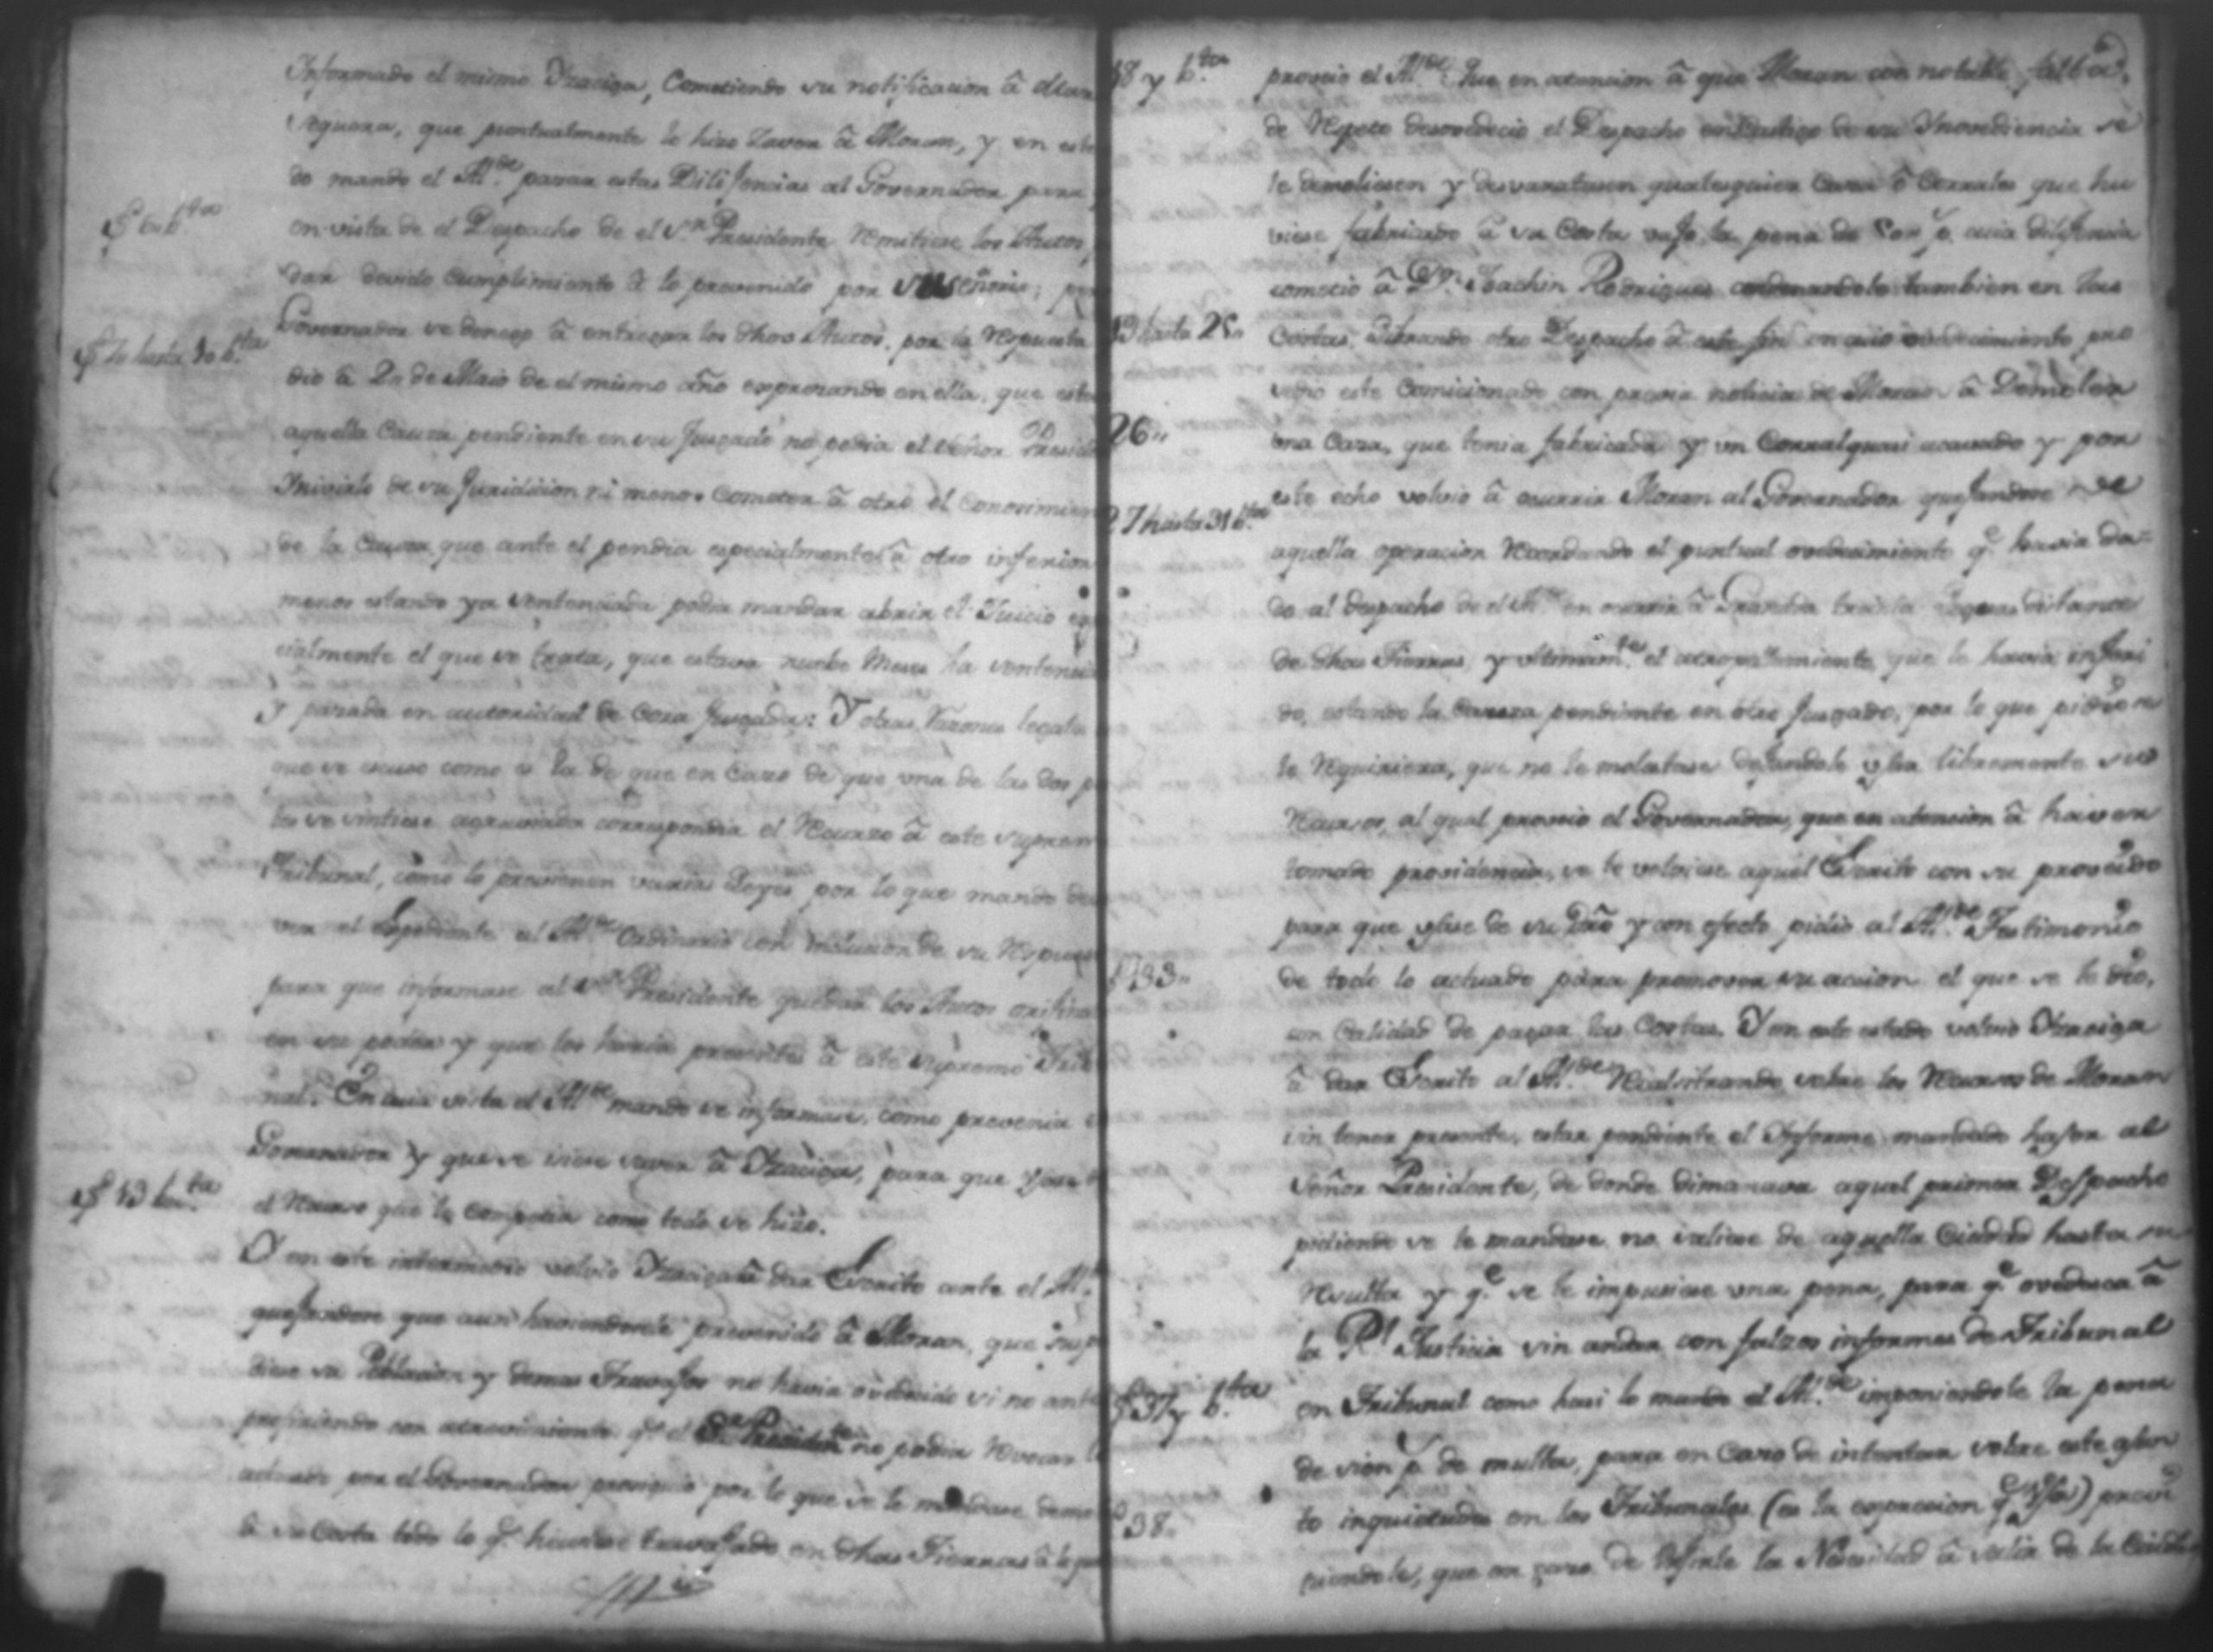 Informado el mismo Itraciga, Cometiendo su notificacion â
Sequera, que puntualmente le hizo Savèr â Moran, y en este
do mando el Al.de pasar estas Dilijencias al Governador para
fs 6 b.ta
en vista de el Despacho de el S.or Presidente Remitiese los Autos
dar devido Cumplimiento â lo prevenido por su señoria; pero
fs 10 b.ta
Governador se denego â entregar los dhos Autos, por la Respuesta
dio â 20 de Maio de el mismo año expresando en ella, que estan
aquella Causa pendiente en su Jusgado no podia el Señor Presid
Inivirle de su Juridicion ni menos Cometer â otro el Conosimien
de la Causa que ante el pendia especialmente â otro inferior
menos estando ya Sentenciada podia mandar abrir el Juicio
cialmente el que se trata, que estava nuebe Meses ha sentencia
y pasada en autoridad de Cosa Jusgada: Y otras Razones legales
que se escuso como es la de que en Caso de que una de las dos
tes se sintiese agraviada correspondia el Recurso â este suprem
Tribunal, como lo previenen varias Leyes por lo que mando
ver el Expediente al Al.de Ordinario con inclusion de su Respues
para que informase al S.or Presidente quedar los Autos orijina
en su poder y que los haria presentes â este supremo Trib
nal. En cuia vista el Al.de mando se informase, como prevenia
Governador y que se iciese saver â Itraciga, para que usase
fs 13 b.ta
el Recurso que le Competia como todo se hizo.
Y en este intermedio volvio Itraciga â dar Escrito ante el Al.
quejandose que aun haviendosele prevenido â Moran, que
diese su Poblacion y demas Travajos no havia ovedecido si no ant
profiriendo con atrevimiento q.e el S.r Presidente no podia Revocar
actuado por el Governador prosiguio por lo que se le mandase demo
â su Costa todo lo q.e huviese travajado en dhas Tierras â lo
18 y b.ta
proveio el Al.de que en atencion â que Moran con notable falta
de Respeto desovedecio el Despacho en Castigo de su Inovediencia se
le demoliesen y desvaratasen qualesquiera Casa ô Corrales que hu
viese fabricado â su Costa vajo la pena de p.s cuia dilijencia
cometio â D.n Joachin Rodrigues condenandole tambien en las
19 hasta 25
Costas, Librando otro Despacho â este fin en cuio ovedecimiento pro
vedio este Comicionado con previa noticia de Moran â Demoler
26
una Casa, que tenia fabricada y un Corral quasi acavado y por
27 hasta 31 b.ta
este echo volvio â ocurrir Moran al Governador quejandose de
aquella operacion Recordando el puntual ovedecimiento q.e havia da
do al despacho de el Al.de en ocurrir â treinta Leguas distante
de dhas Tierras, y ultimam.te el atropellamiento que le havia inferi
do, estando la Causa pendiente en otro Jusgado, por lo que pidio se
le Requiriera, que no le molestase dejandole usar libremente sus
Recursos, al qual proveio el Governador, que en atencion â haver
tomado providencia, se le volviese aquel Escrito con su proveido
para que usase de su dro y con efecto pidio al Al.de Testimonio
33
de todo lo actuado para promover su accion el que se le dio,
con Calidad de pagar las Costas. Y en este estado volvio Itraciga
â dar Escrito al Al.de sobre los Recursos de Moran
sin tener presente, estar pendiente el Informe mandado hazer al
Señor Presidente, de donde dimanava aquel primer Despacho
pidiendo se le mandase no saliese de aquella Ciudad hasta su
Resulta y q.e se le impusiese una pena, para q.e ovedesca â
la R.l Justicia sin andar con falsos informes de Tribunal
fs 37 y b.ta
en Tribunal como hasi lo mando el Al.de imponiendole la pena
de sien p.s de multa, para en Caso de intentar sobre este asun
to inquietudes en los Tribunales (es la exprecion q.e usa) previ
38
niendole, que en caso de la Nesesidad â salir de la Ciudad